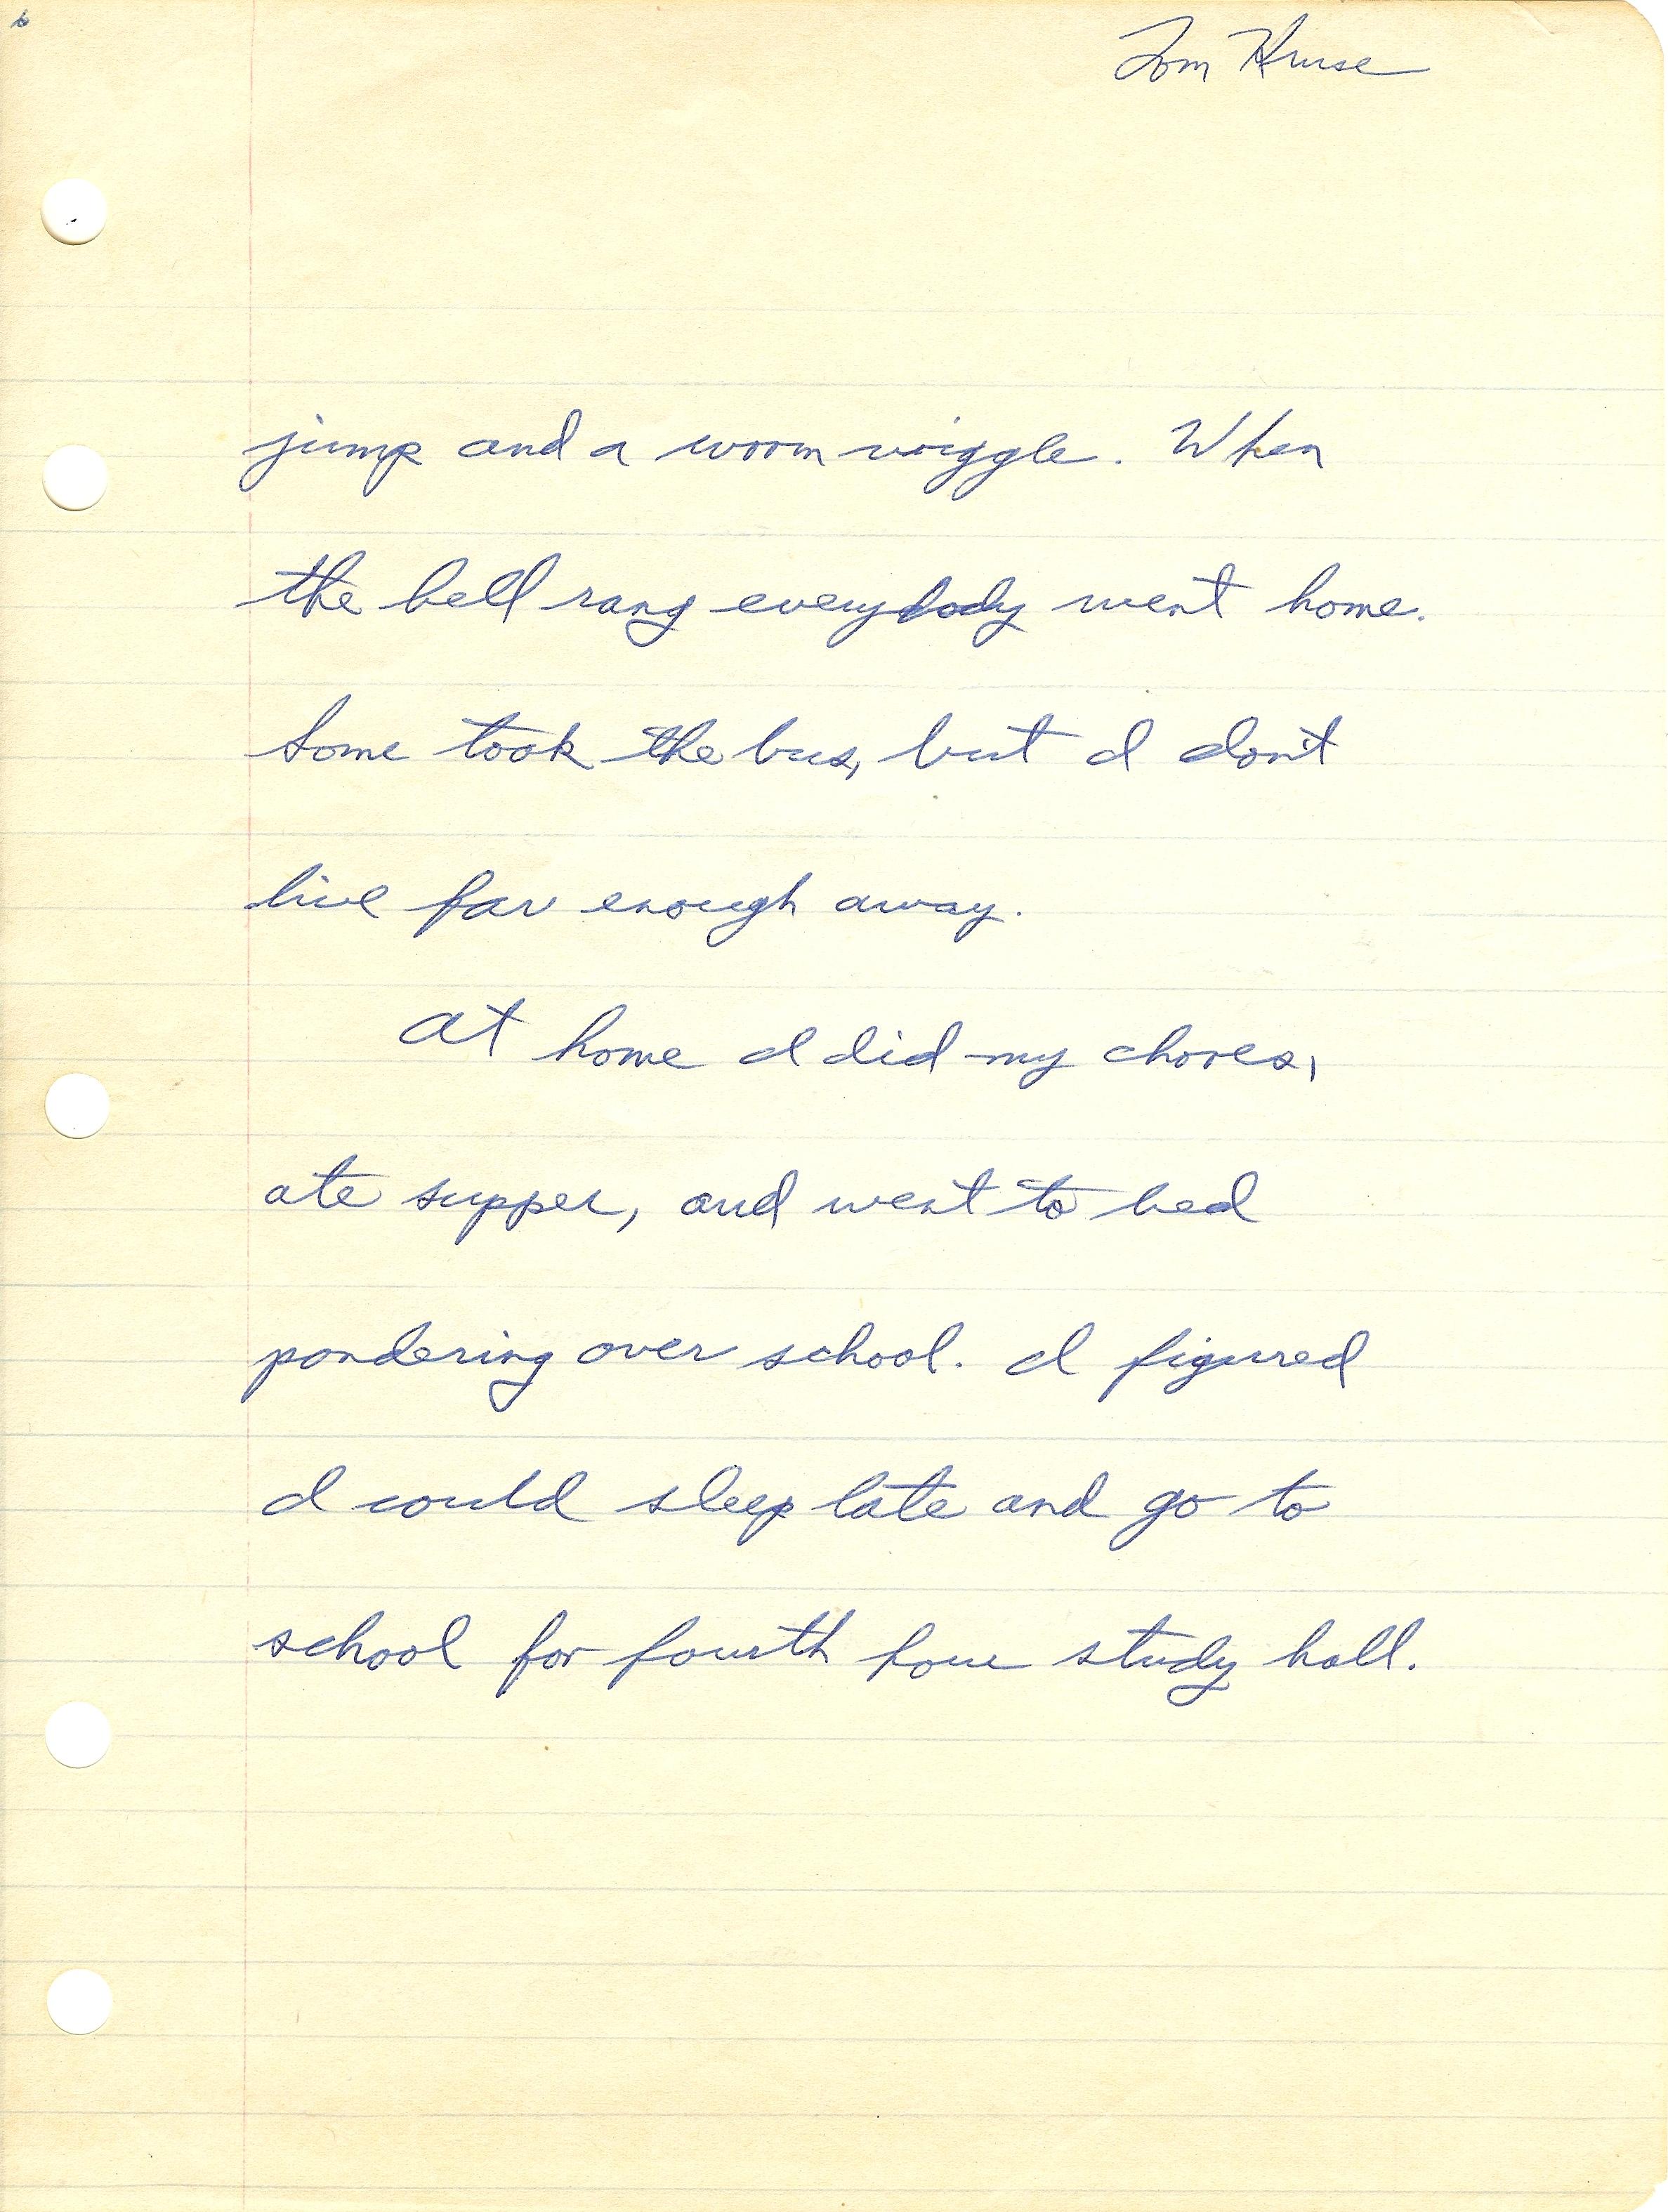 Tom Kruse
jump and a worm wiggle. When
the bell rang everybody went home.
Some took the bus, but I don't
live far enough away.
At home I did my chores,
ate supper, and went to bed
pondering over school. I figured
I could sleep late and go to
school for fourth hour study hall.